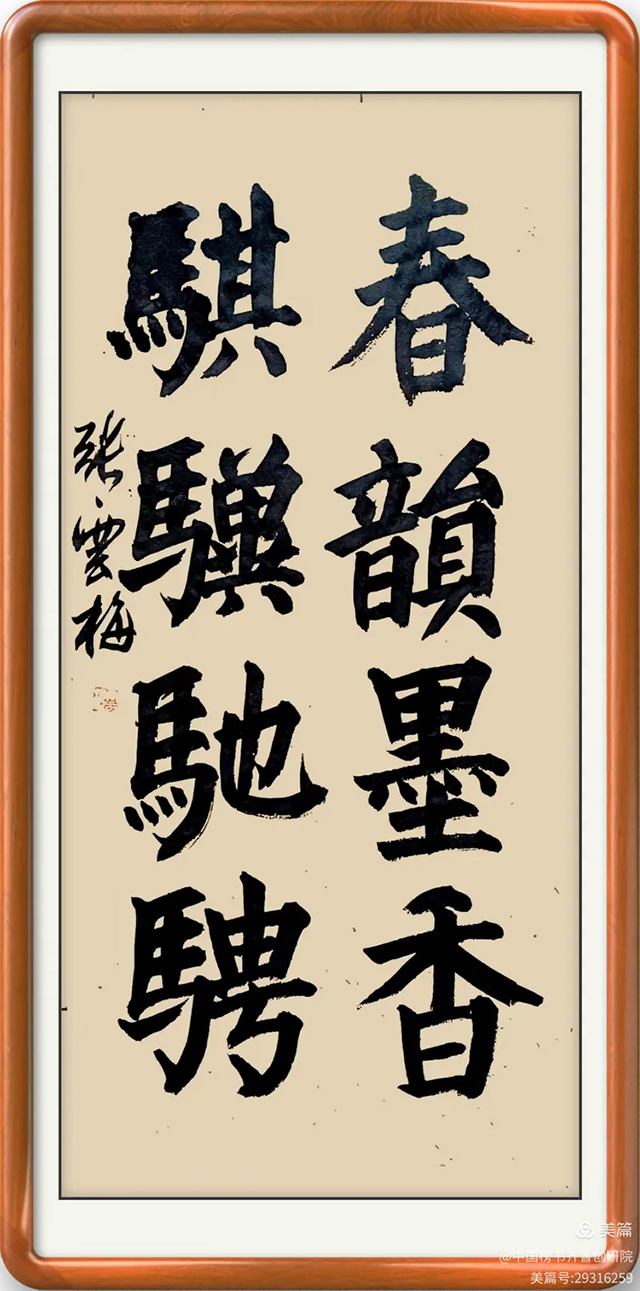 春韻墨香
騏驥馳騁
張雲梅
美篇
@中国榜书齐鲁创研院
美篇号:29316259